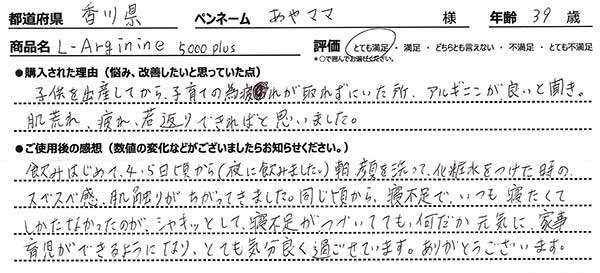 都道府県 香川県 ペンネーム あやママ 様 年齢 39 歳
商品名 L-Arginine 5000 plus 評価 とても満足・満足・どちらとも言えない・不満足・とても不満足
*○で囲んでお選びください。
●購入された理由（悩み、改善したいと思っていた点）
子供を出産してから、子育ての為疲れが取れずにいた所、アルギニンが良いと聞き。
肌荒れ、疲れ、若返りできればと思いました。
●ご使用後の感想（数値の変化などがございましたらお知らせください。）
飲みはじめて、4、5日頃から（夜に飲みました。）朝、顔を洗って、化粧水をつけた時の
スベスベ感、肌触りがちがってきました。同じ頃から、寝不足で、いつも寝たくて
しかたなかったのが、シャキッとして、寝不足がつづいてても、何だか元気に、家事
育児ができるようになり、とても気分良く過ごせています。ありがとうございます。